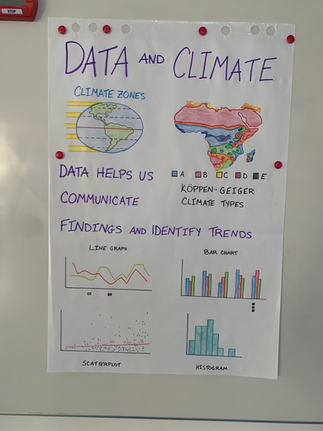 STOP
DATA AND CLIMATE
CLIMATE ZONES
A B C D E
DATA HELPS US
KÖPPEN-GEIGER
COMMUNICATE
CLIMATE TYPES
FINDINGS AND IDENTIFY TRENDS
LINE GRAPH
BAR CHART
SCATTERPLOT
HISTOGRAM